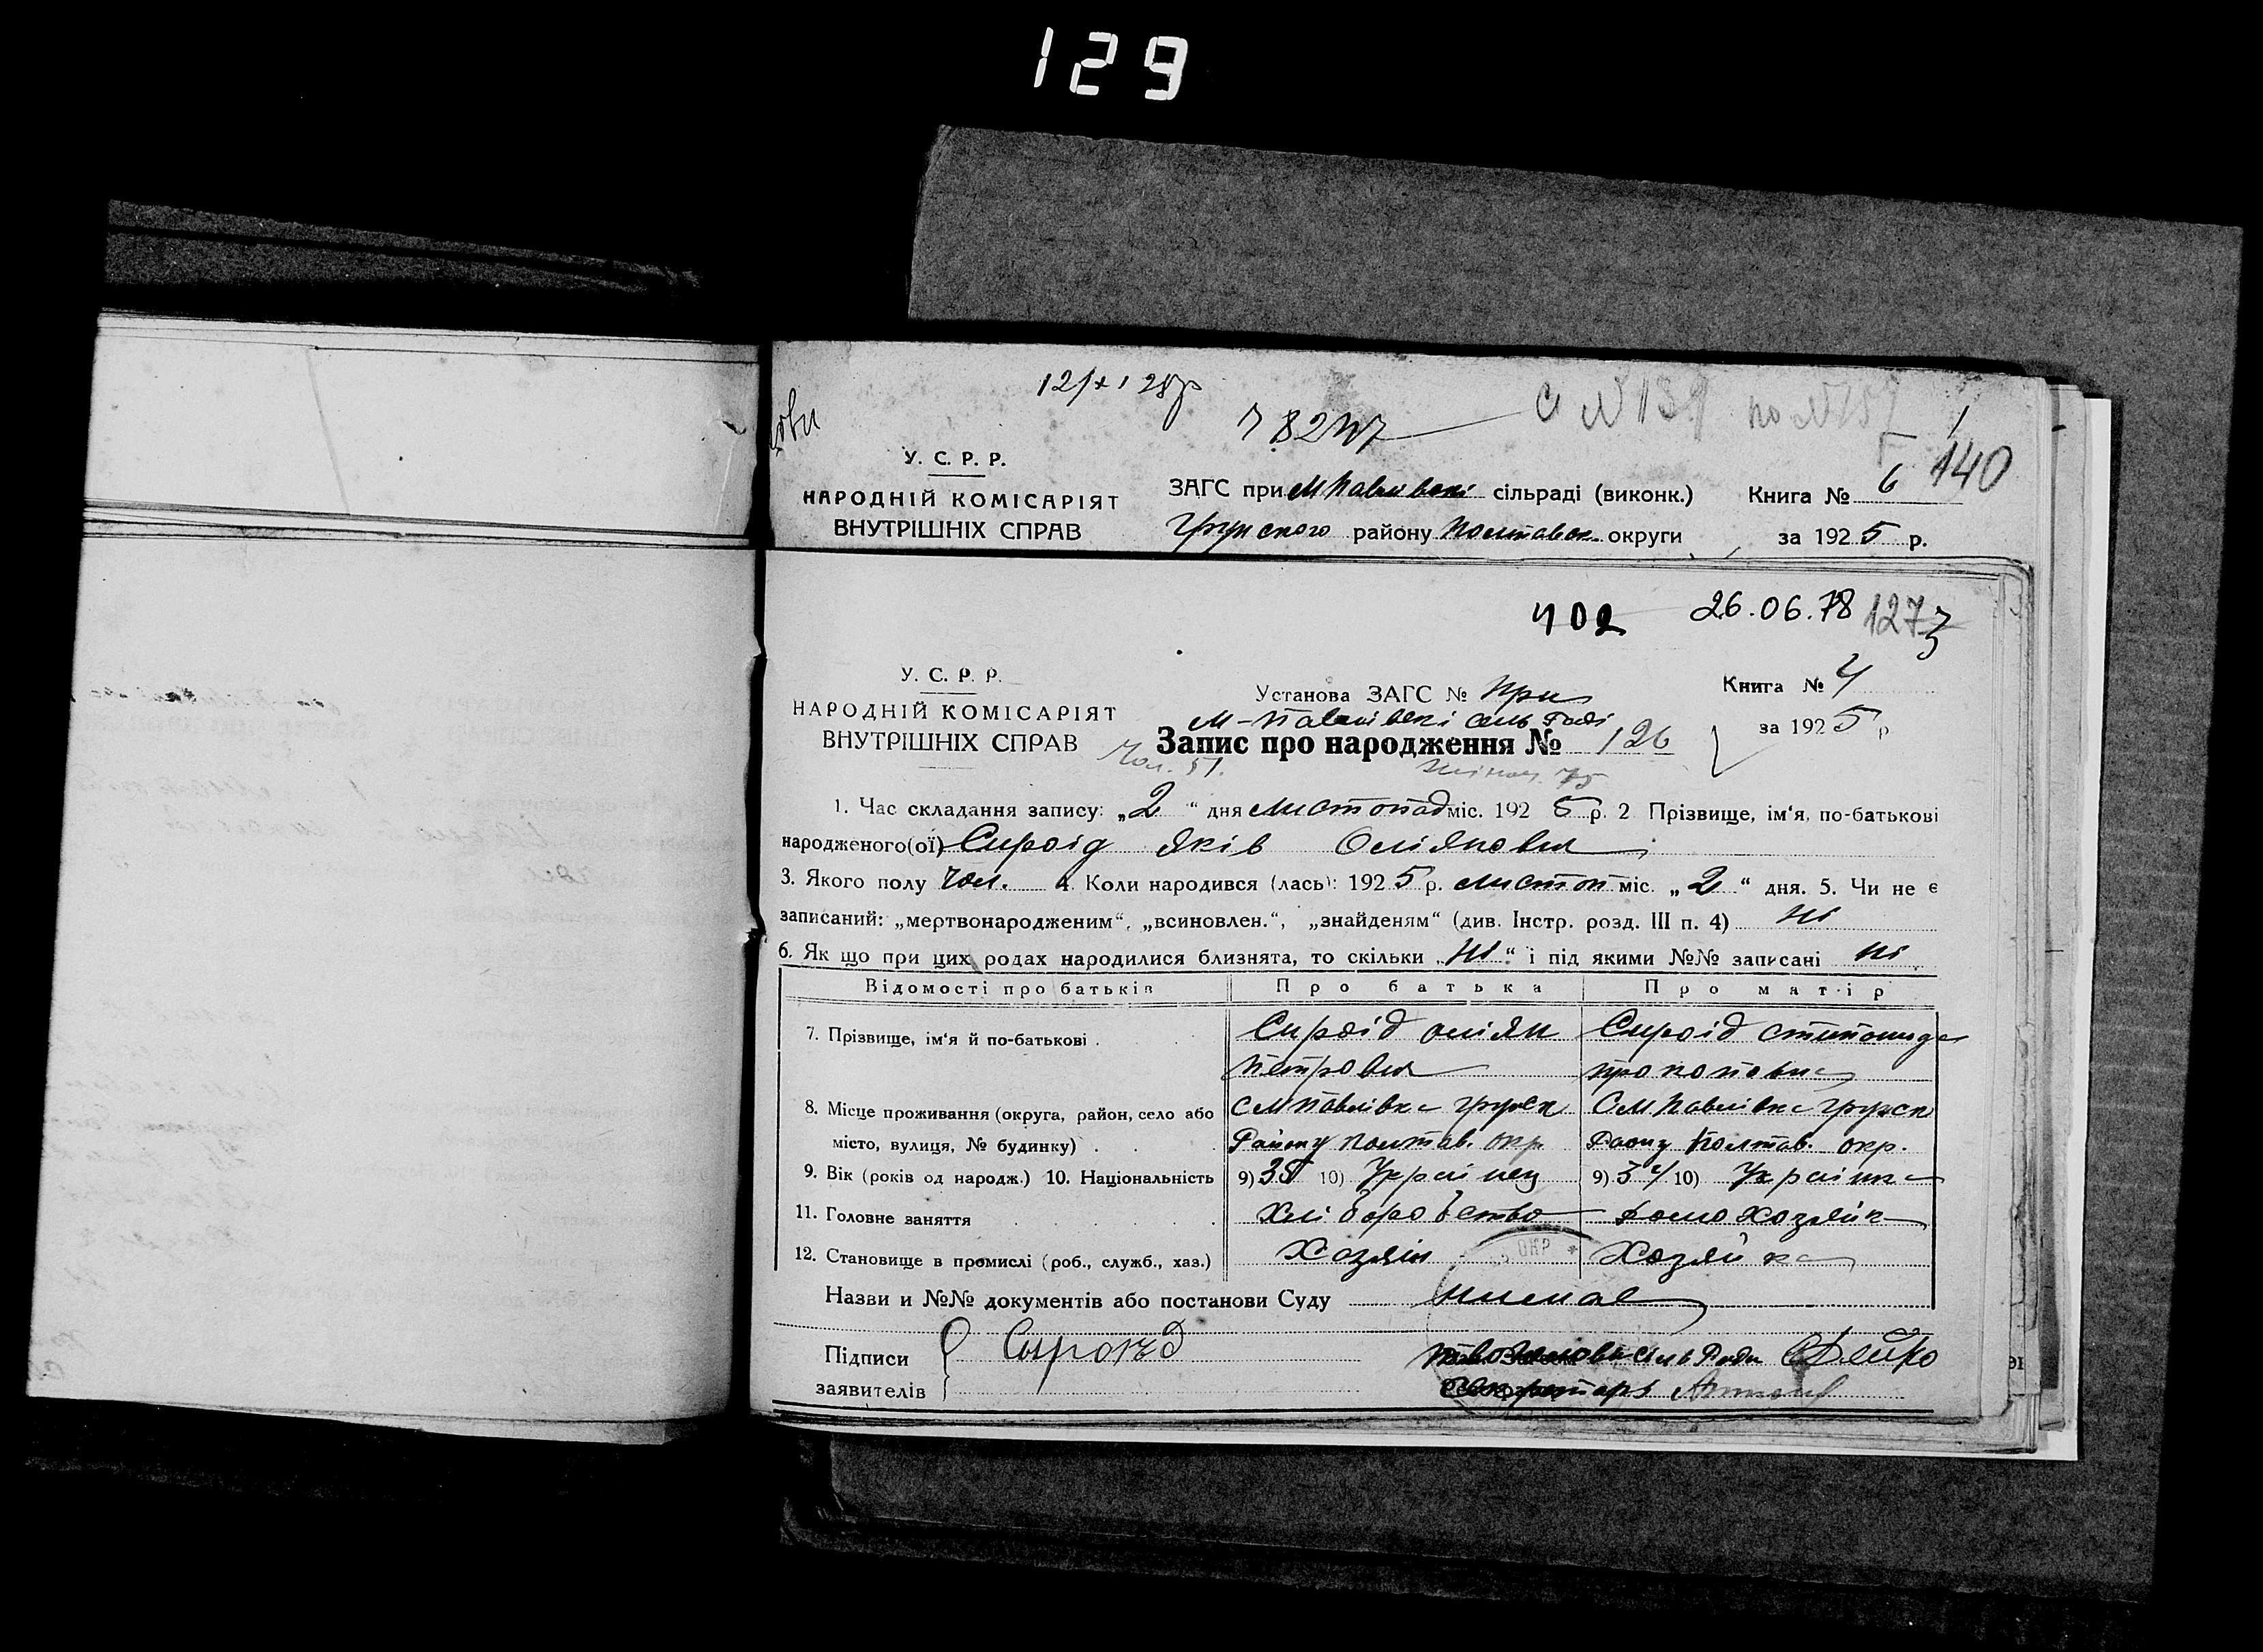 129
12/XI 28р
С №139 по №157
140
У. С. Р. Р.
НАРОДНІЙ КОМІСАРІЯТ
ВНУТРІШНІХ СПРАВ
ЗАГС при М Павлівскі сільраді (виконк.)
Грунского району Полтавск. округи
Книга № 6
за 1925 р.
402 26.06.78 127
У. С. Р. Р.
НАРОДНІЙ КОМІСАРІЯТ
ВНУТРІШНІХ СПРАВ
Установа ЗАГС № При
М-Павлівскі сель Раді
Запис про народження № 126
Книга № 4
за 1925 р
Чол. 51. Жіноч. 75
1. Час складання запису: „2“ дня Листопад міс. 1925 р. 2 Прізвище, ім'я, по-батькові
народженого(ої) Сироід Яків Оліянович
3. Якого полу Чол. 4. Коли народився (лась): 1925 р. листоп міс. „2“ дня. 5. Чи не є
записаний: „мертвонародженим“, „всиновлен.“, „знайденям“ (див. Інстр. розд. III п. 4) Ні
6. Як що при цих родах народилися близнята, то скільки „Ні“ і під якими №№ записані ні
Відомості про батьків Про батька Про матір
7. Прізвище, ім'я й по-батькові . Сироід Оліян Сироід
Петрович Прокоповна
8. Місце проживання (округа, район, село або С М Павлівка Грунск С М Павлівка Грунск
місто, вулиця, № будинку) . . . Району Полтав. окр Раону Полтав. окр.
9. Вік (років од народж.) 10. Національність 9) 35 10) Украінец 9) 34 10) Украінка
11. Головне заняття . . . . . Хліборобство домохозяйк
12. Становище в промислі (роб., служб., хаз.) Хозяін Хозяйка
Назви и №№ документів або постанови Суду Немае
Підписи Сыроѣд сель Ради
заявителів Секретарь